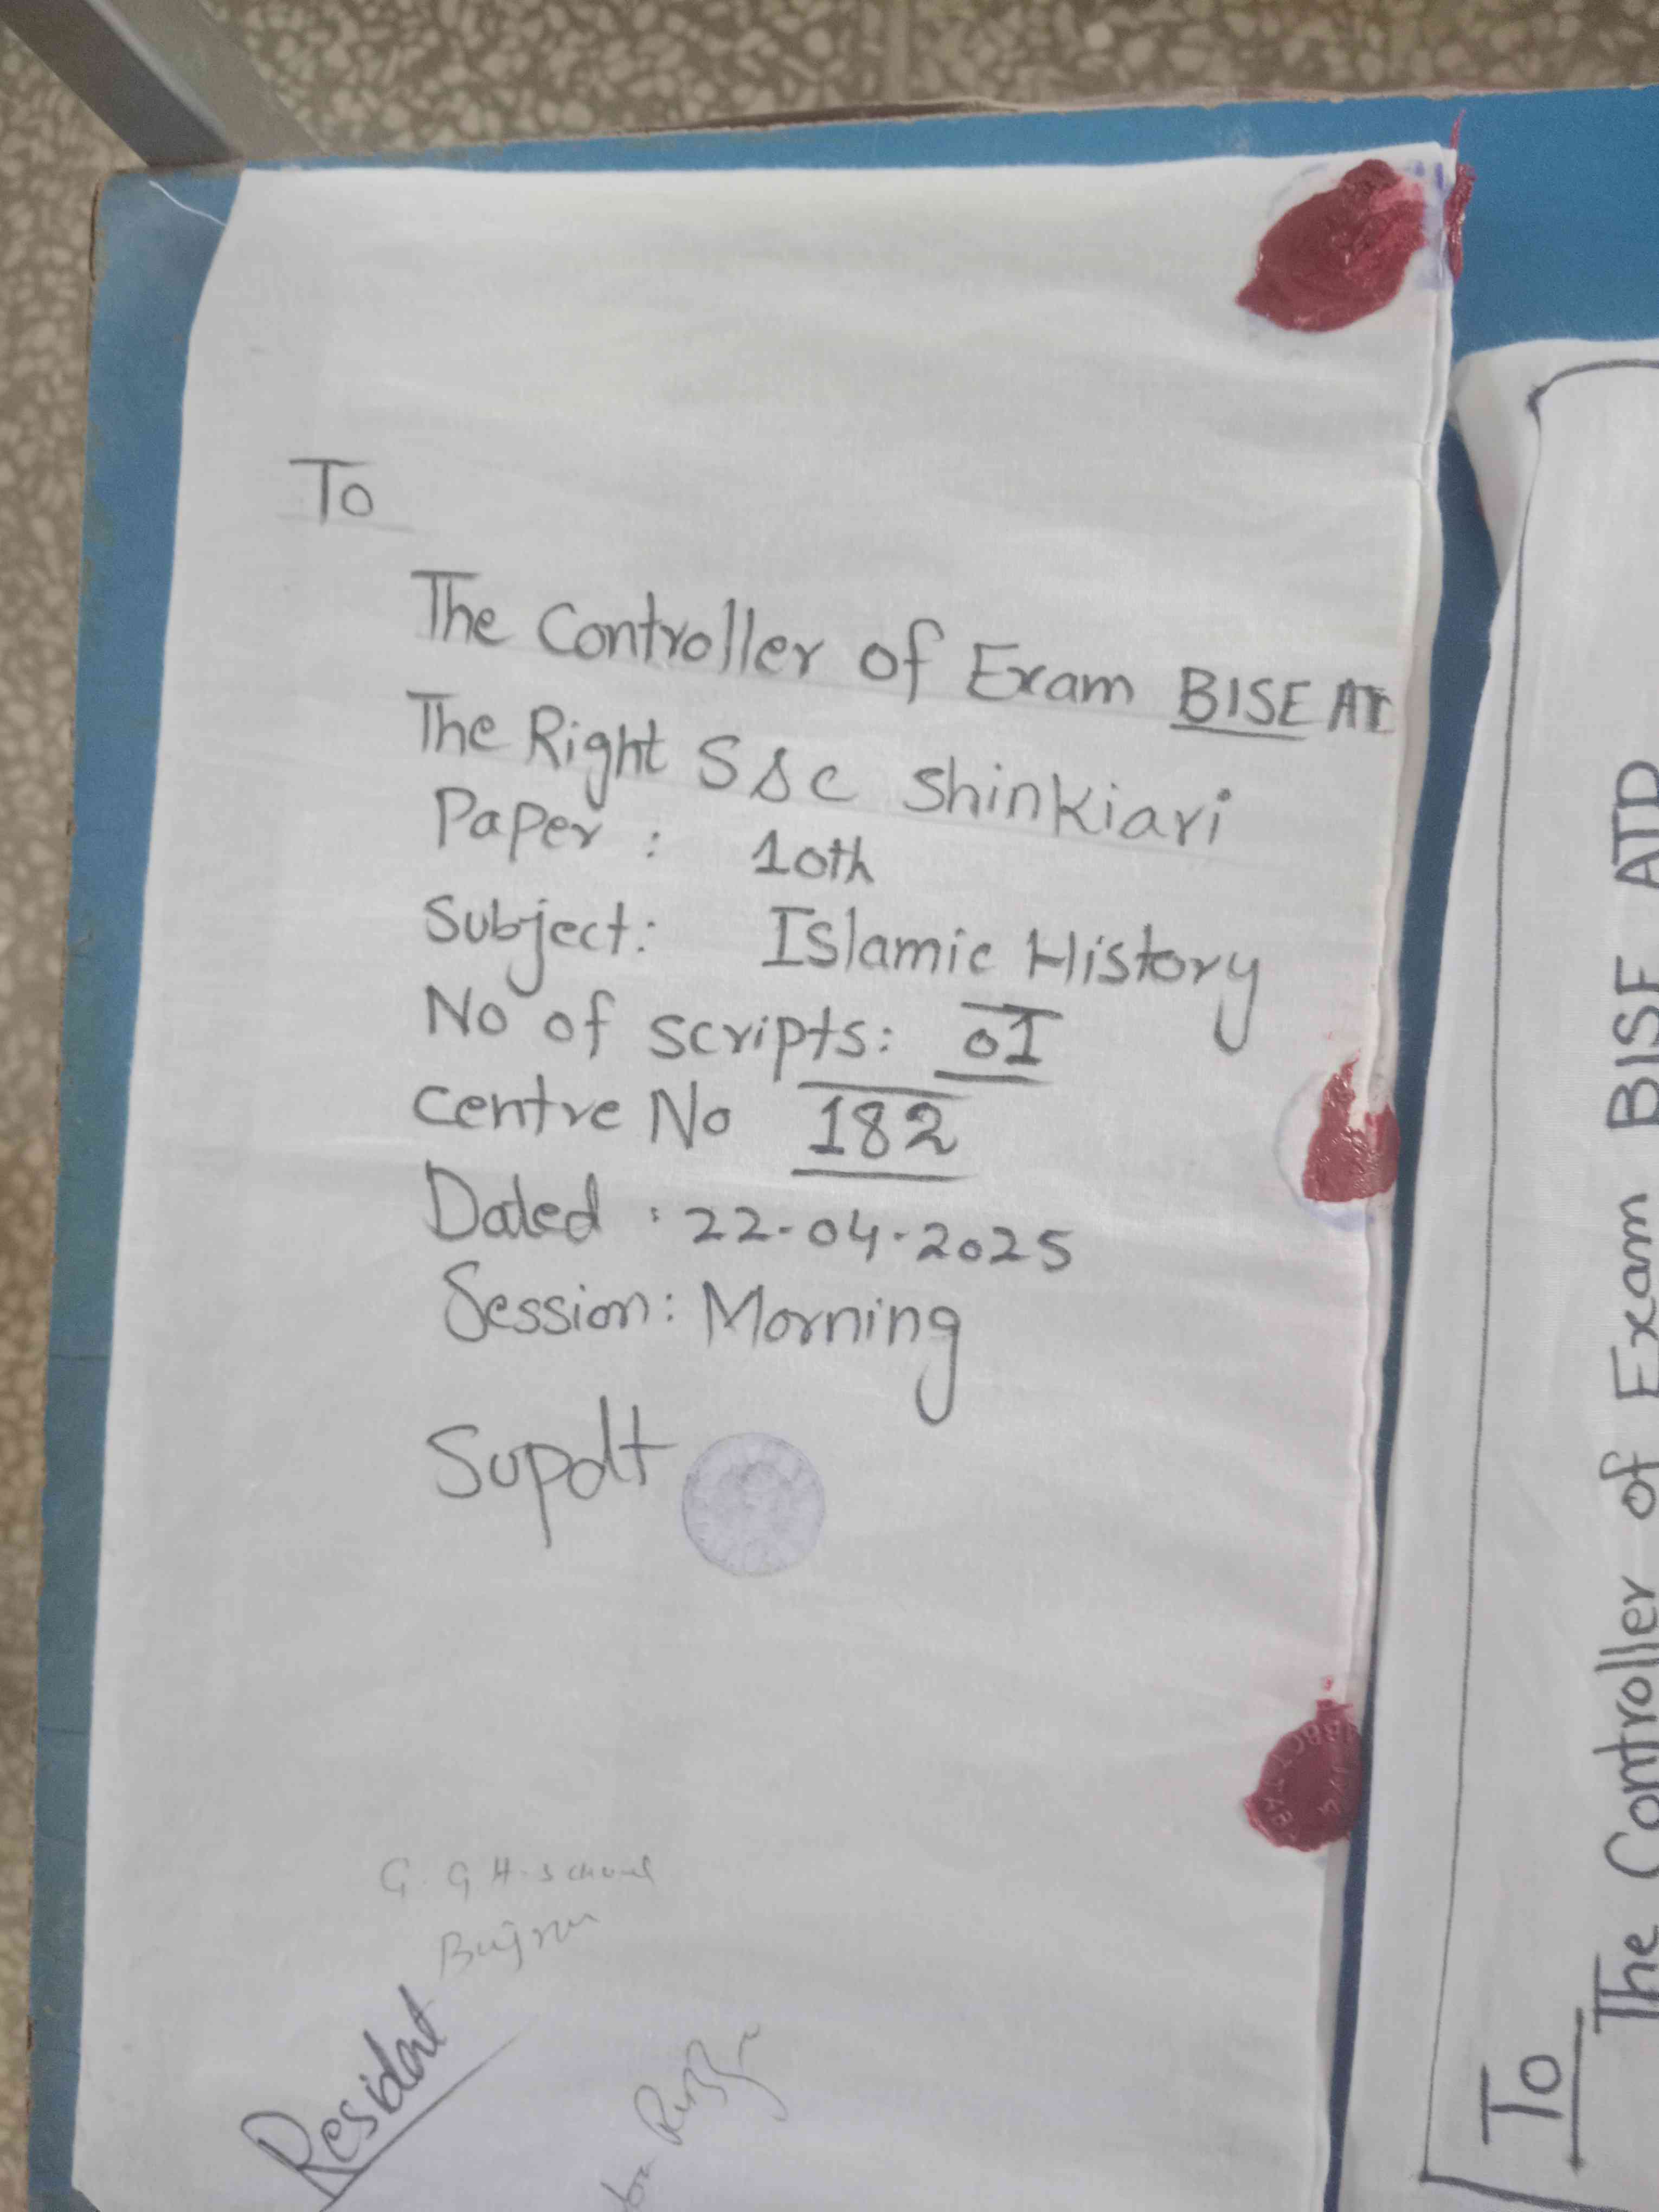 To
The Controller of Exam BISE AT
The Right SSC Shinkiari
Paper : 10th
Subject: Islamic History
No of scripts: 01
centre No 182
Dated : 22-04-2025
Session: Morning
Supdt
G. G H. School
Resident
To
The Controller of Exam BISE ATD